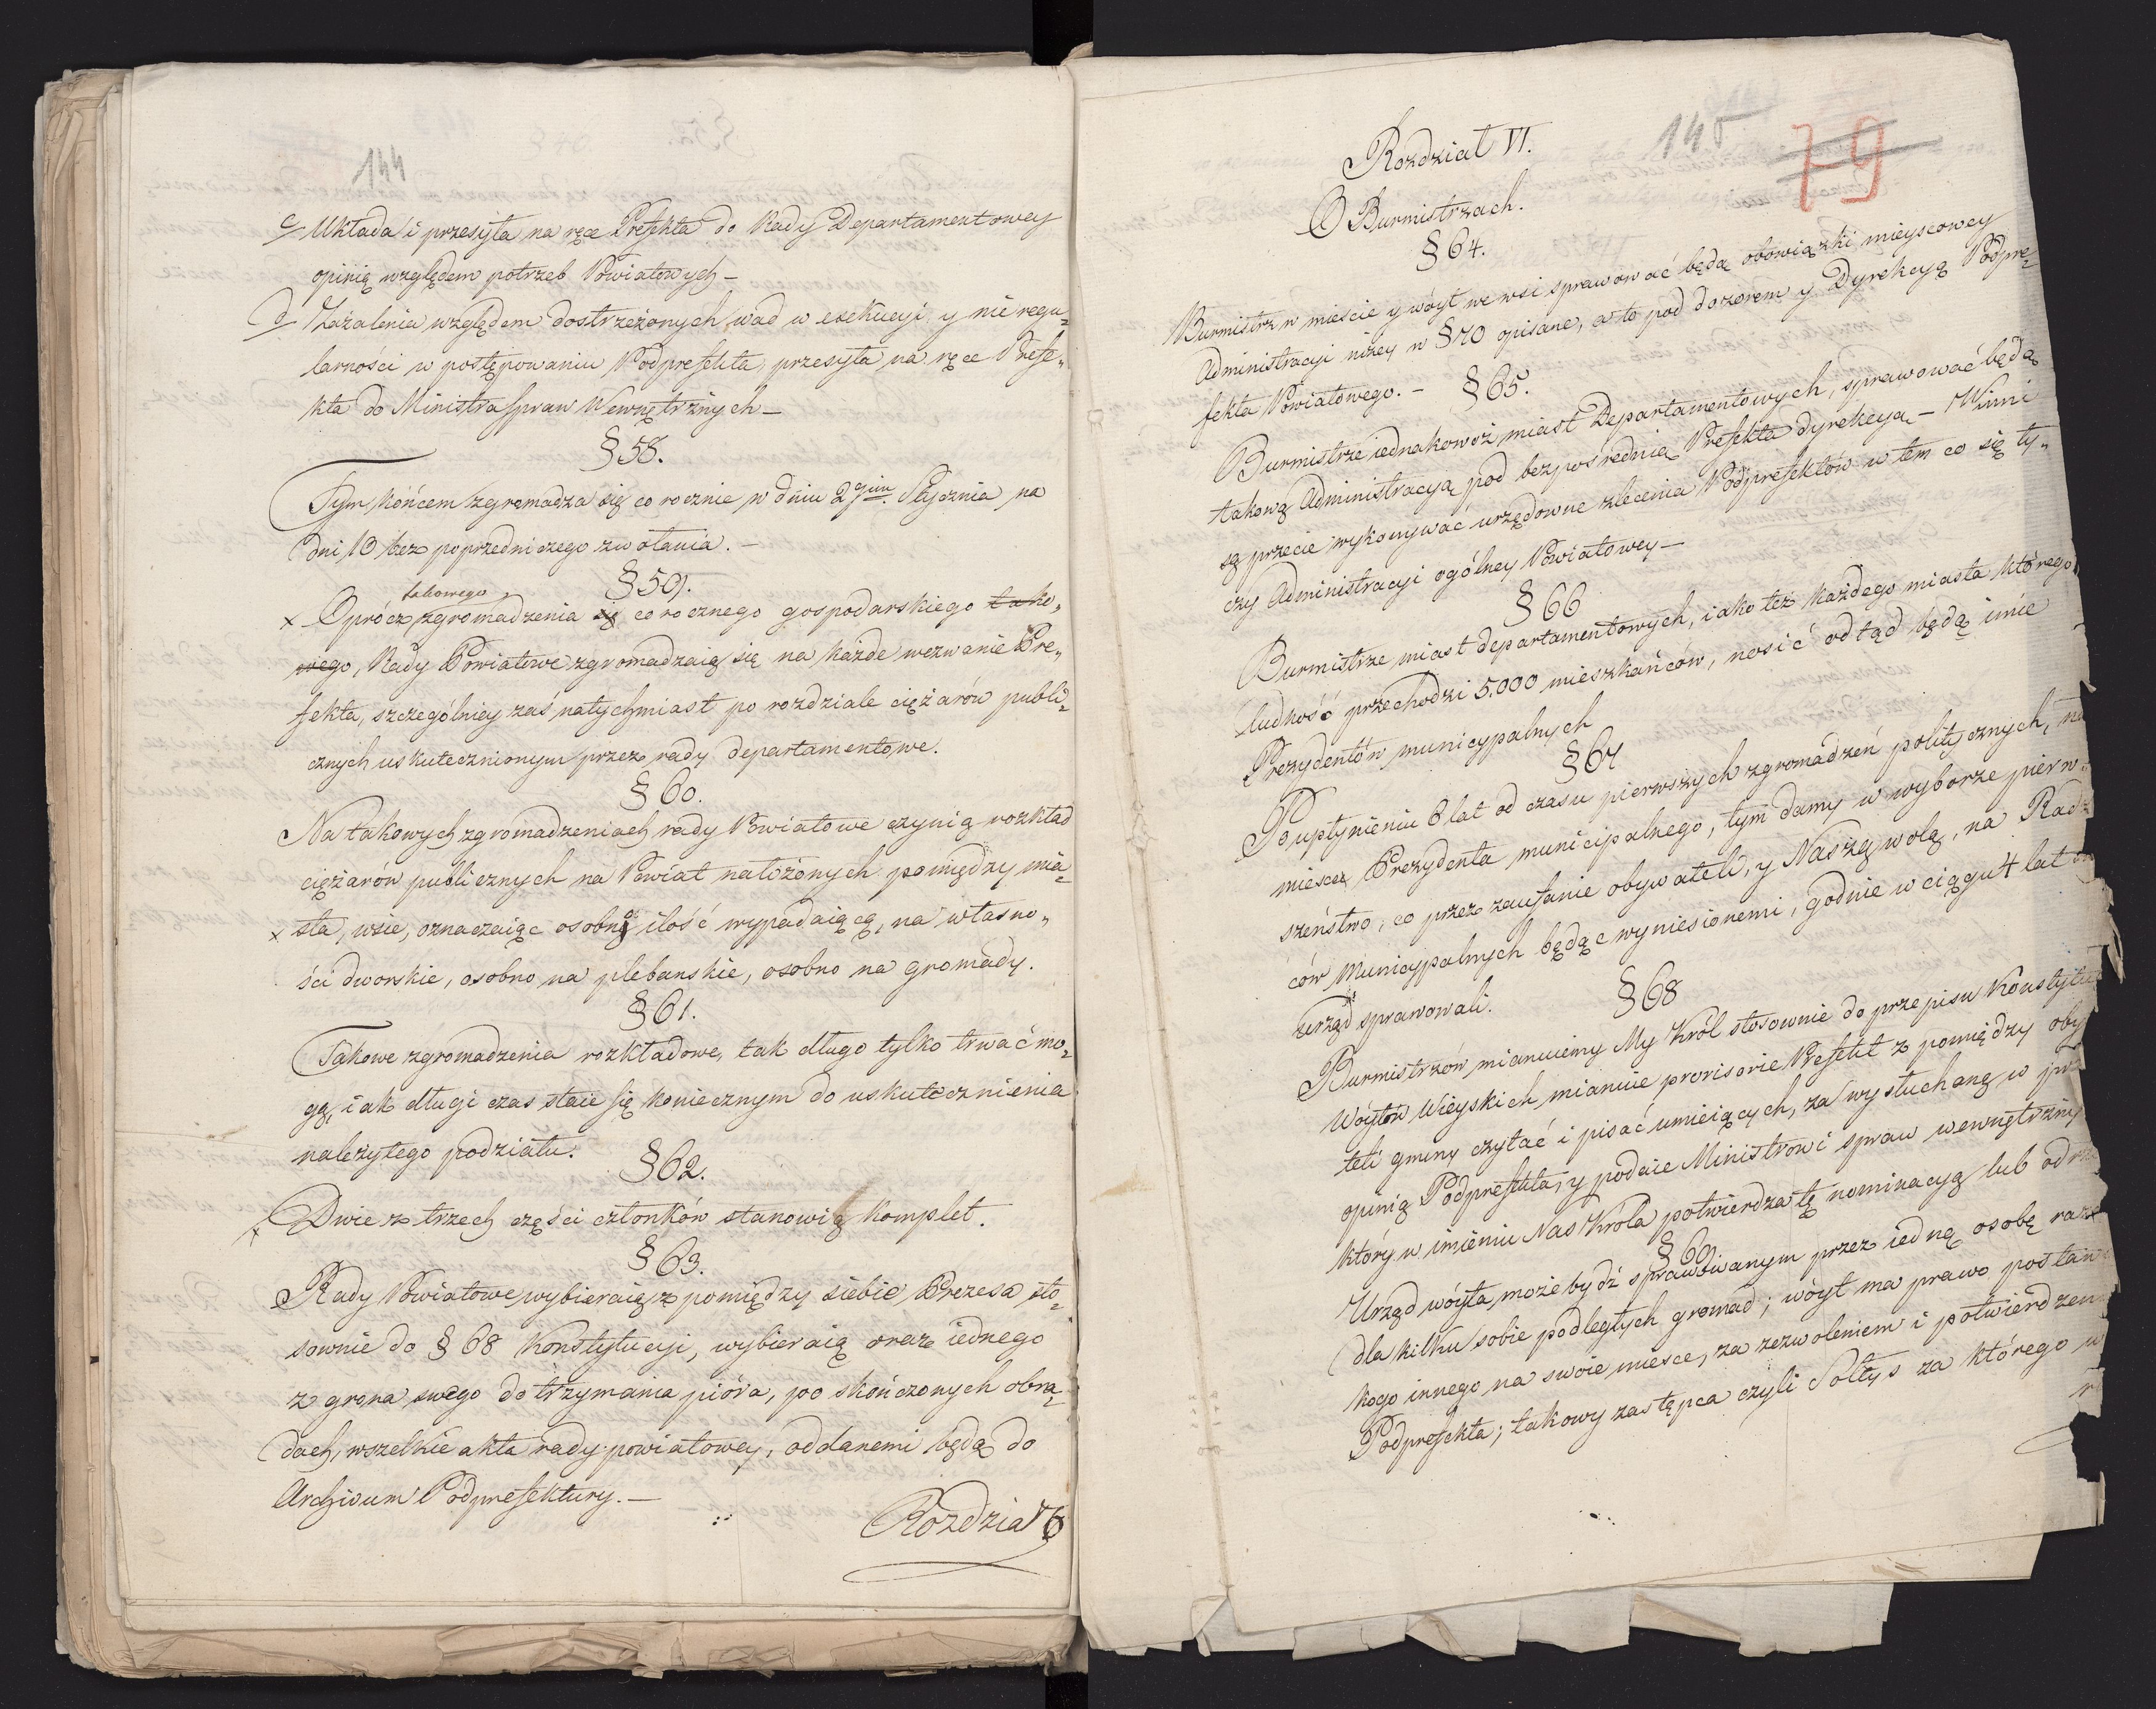 144
c/ Układa i przesyła na ręce Prefekta do Rady Departamentowey
opinią względem potrzeb Powiatowych –
d/ Zażalenia względem dostrzeżonych wad w exekucyi y nie regu„
larności w postępowaniu Podprefekta, przesyła na ręce Prefe„
kta do Ministra Spraw Wewnętrznych –
§ 58.
Tym końcem zgromadza się co rocznie w dniu 2gim Stycznia na
dni 13 bez poprzedniczego zwołania. –
§ 59.
takowego
x Oprócz zgromadzenia się corocznego gospodarskiego tako„
wego, Rady Powiatowe zgromadzaią się na każde wezwanie Pre„
fekta, szczególniey zaś natychmiast po rozdziale ciężarów publi„
cznych uskutecznionym przez rady departamentowe.
§ 60.
Na takowych zgromadzeniach rady Powiatowe czynią rozkład
ciężarów publicznych na Powiat nałożonych pomiędzy mia„
x sta, wsie, oznaczaiąc osobno ilość wypadaiącą, na własno„
ści dworskie, osobno na plebanskie, osobno na gromady.
§ 61.
Takowe zgromadzenia rozkładowe, tak długo tylko trwać mo„
gą, iak długi czas staie się koniecznym do uskutecznienia
należytego podziału.
§ 62.
x Dwie z trzech części członków stanowią komplet.
§ 63.
Rady Powiatowe wybieraią z pomiędzy siebie Prezesa sto„
sownie do § 68 Konstytucyi, wybieraią oraz iednego
z grona swego do trzymania pióra, po skończonych obra„
dach, wszelkie akta rady powiatowey, oddanemi będą do
Archivum Podprefektury. –
Rozdział 6
145
79
Rozdział VI.
O Burmistrzach.
§ 64.
Burmistrz w mieście y wóyt we wsi sprawować będą obowiązki mieyscowey
Administracyi niżey w § 70 opisane, a to pod dozorem y Dyrekcyą Podpre„
fekta Powiatowego. –
§ 65.
Burmistrze iednakowoż miast Departamentowych, sprawować będą
takową Administracyą pod bezpośrednią Prefekta dyrekcyą – Winni
są przecie wykonywać urzędowne zlecenia Podprefektów w tem co się ty„
czy Administracyi ogólney Powiatowey –
§ 66
Burmistrze miast departamentowych, iako też każdego miasta którego
ludność przechodzi 5.000 mieszkańców, nosić odtąd będą imie
Prezydentów municypalnych
§ 67
Po upłynieniu 8 lat od czasu pierwszych zgromadzeń politycznych, na
miesce Prezydenta municipalnego, tym damy w wyborze pierw„
szeństwo, co przez zaufanie obywateli, y Naszą wolą, na Radz
ców Municypalnych będąc wyniesionemi, godnie w ciągu 4 lat
urząd sprawowali.
§ 68
Burmistrzów mianuiemy My Król stosownie do przepisu Konstytu
Wóytów Wieyskich mianuie provisorie Prefekt z pomiędzy oby
teli gminy czytać i pisać umieiących, za wysłuchaną w
opinią Podprefekta, y podaie Ministrowi spraw wewnętrzny
który w imieniu Nas Króla potwierdza tę nominacyą lub odrz
§ 69
Urząd wóyta może bydź sprawowanym przez iedną osobę raze
dla kilku sobie podległych gromad; wóyt ma prawo postan
kogo innego na swoie miesce, za zezwoleniem i potwierdzen
Podprefekta; takowy zastępca czyli Sołtys za którego w